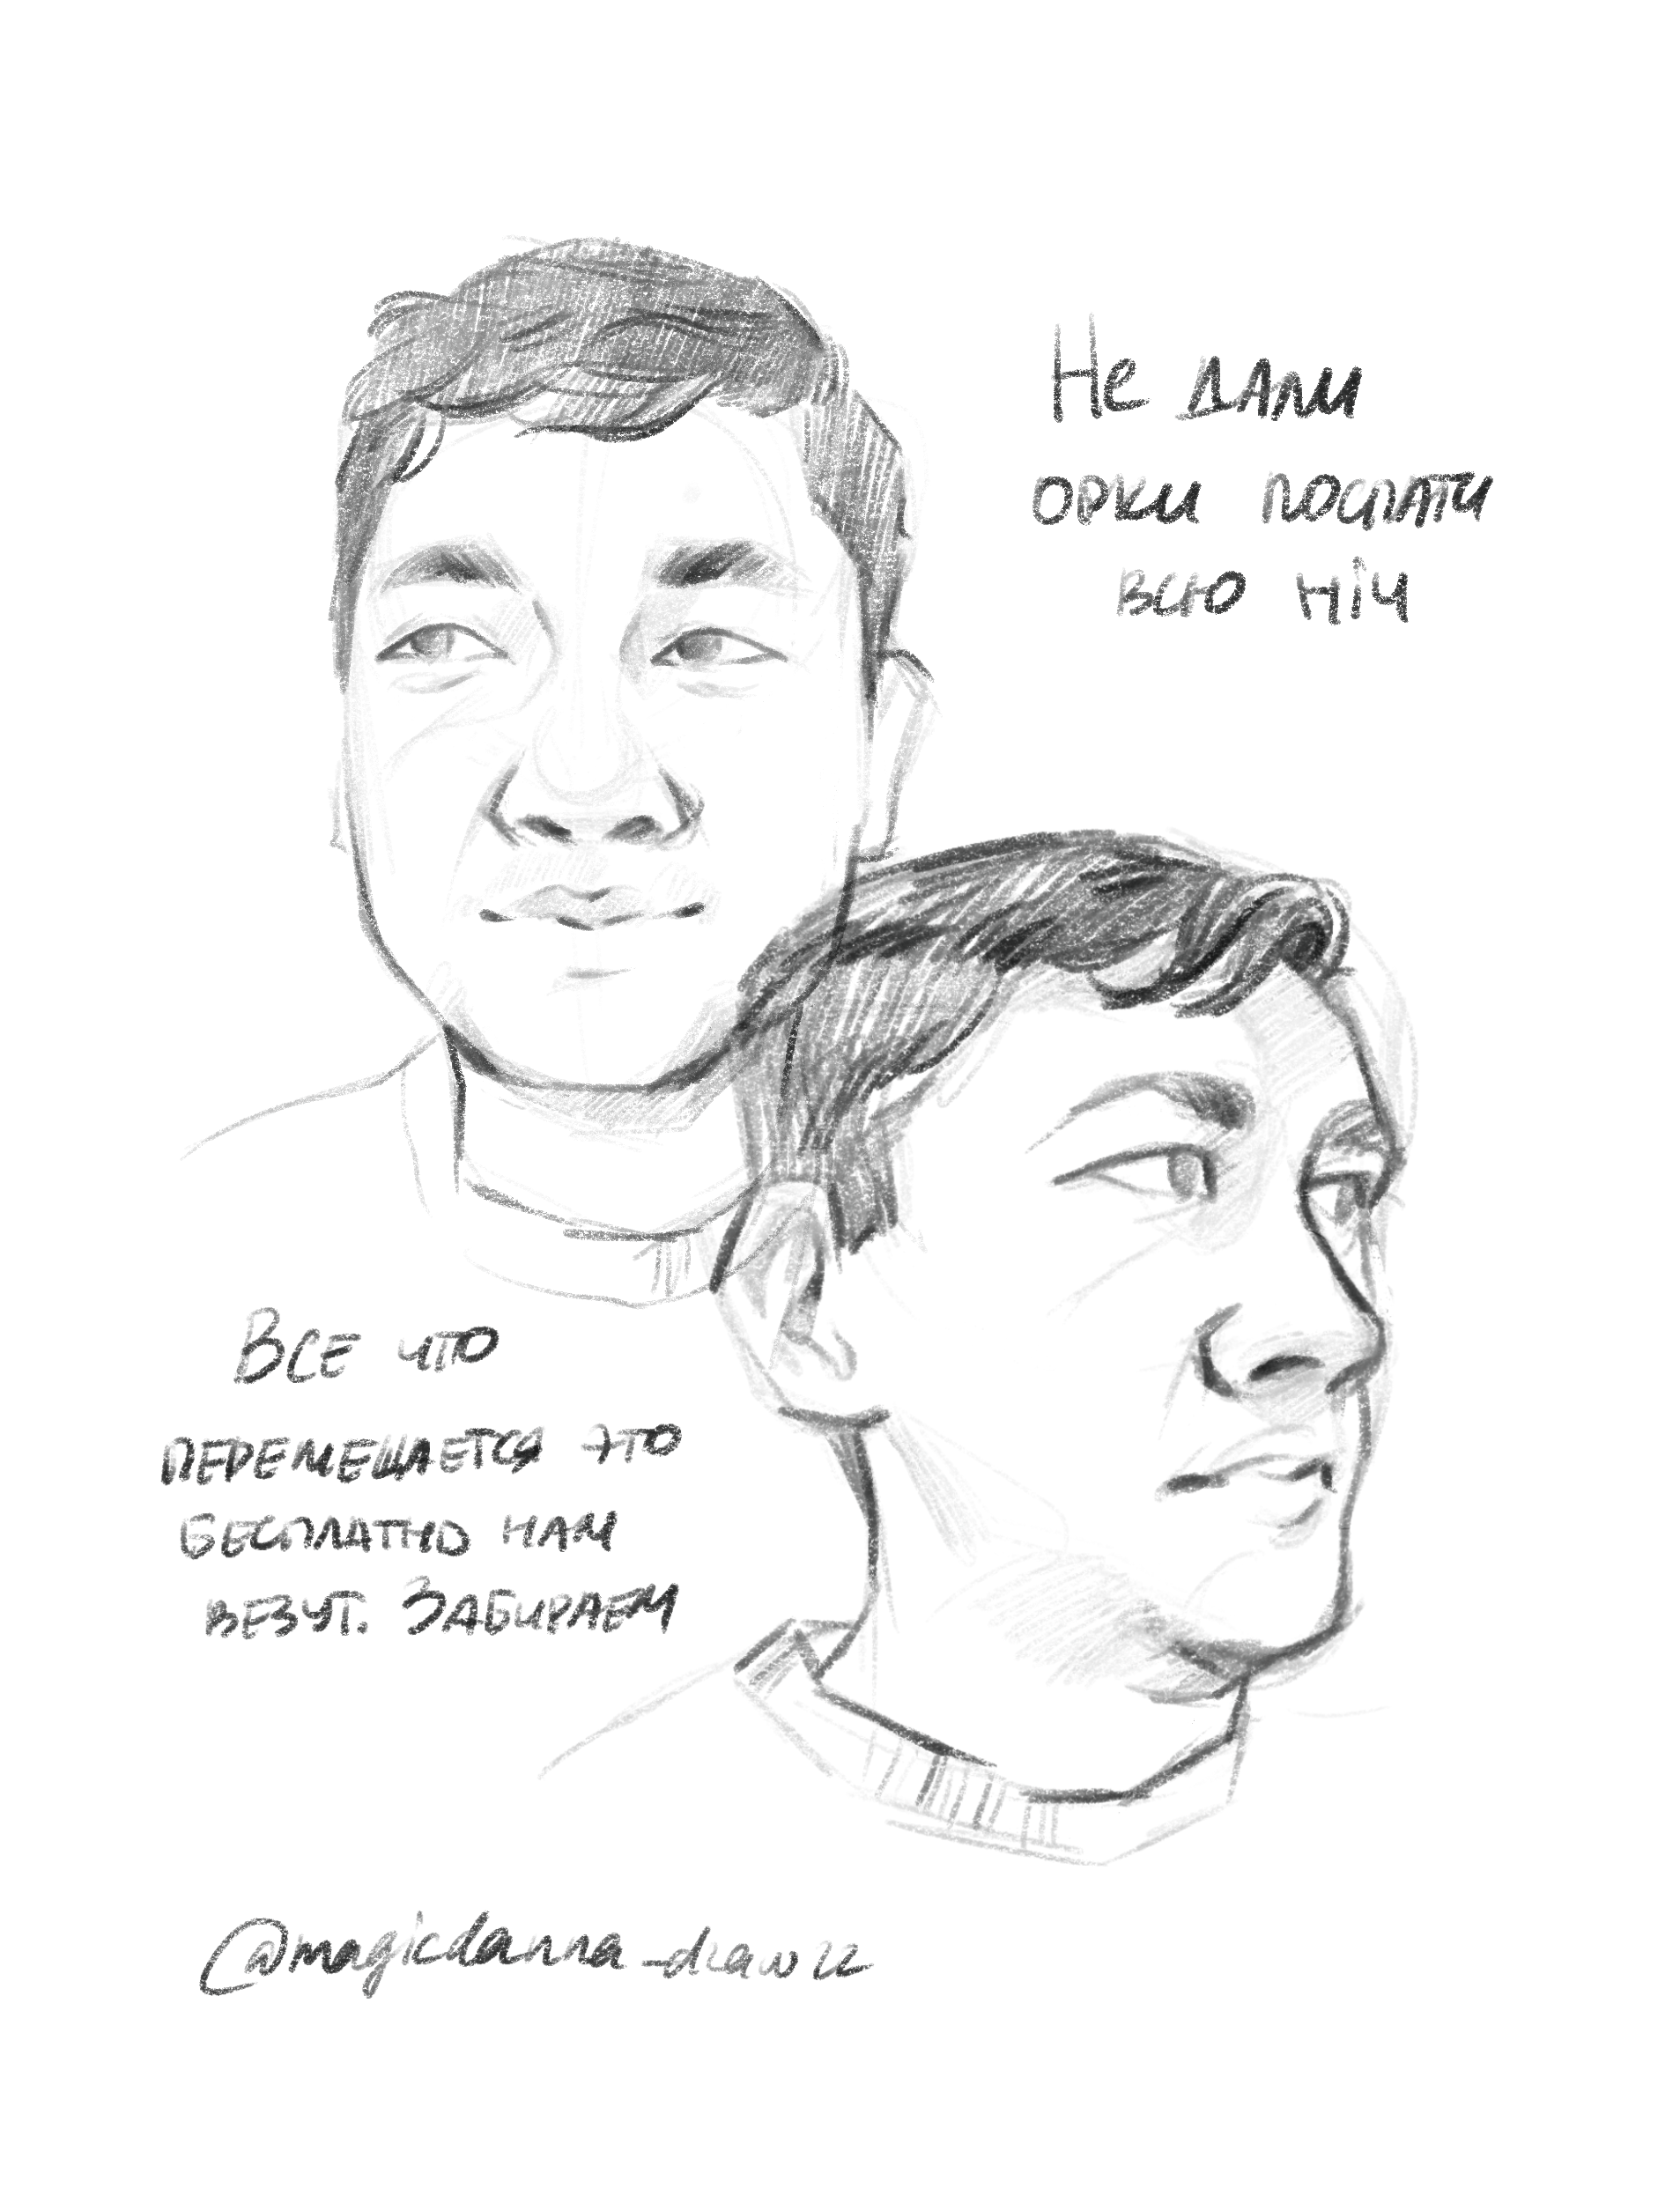 Не дали
орки поспати
всю ніч
Все что
перемещается это
бесплатно нам
везут. Забираем
@magicdanna_drawzz